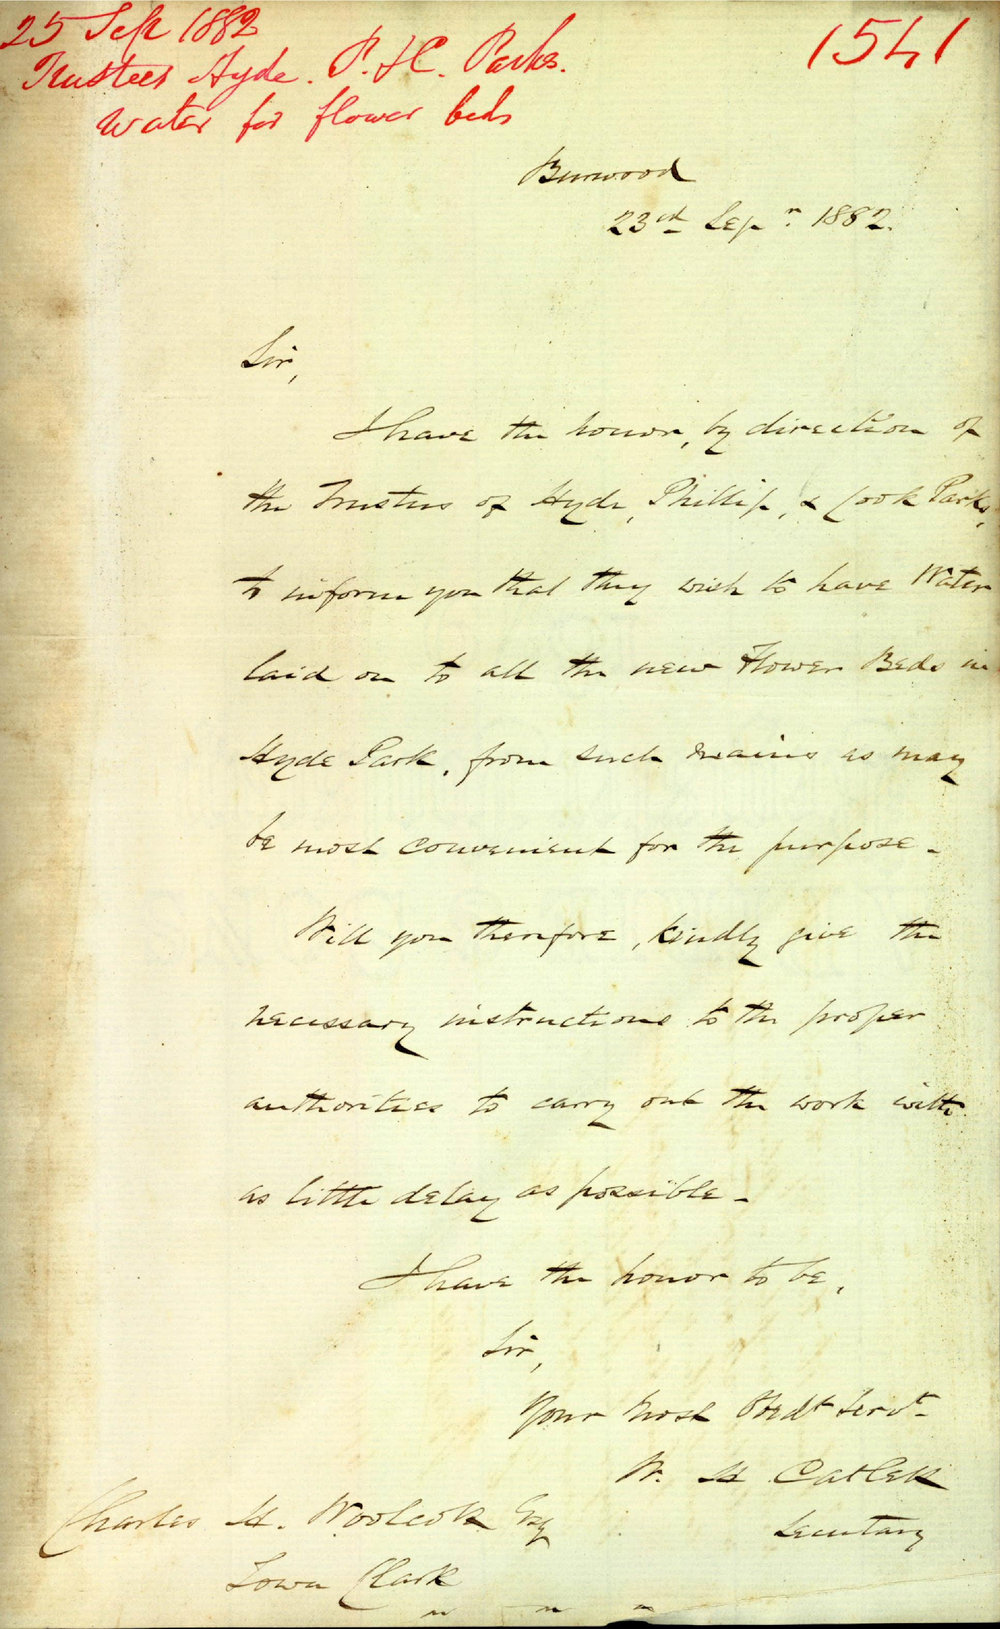 25 Sept 1882
1541
Trustees Hyde. P. & C. Parks.
Water for flower beds
Burwood
23rd Sepr. 1882.
Sir,
I have the honor, by direction of
the Trustees of Hyde, Phillip, & Cook Parks,
to inform you that they wish to have Water
laid on to all the new Flower Beds in
Hyde Park, from such mains as may
be most convenient for the purpose -
Will you therefore, kindly give the
necessary instructions to the proper
authorities to carry out the work with
as little delay as possible -
I have the honor to be,
Sir,
Your most Obedt Servt
W. H Catlett
Secretary
Charles H. Woolcott Esq
Town Clerk